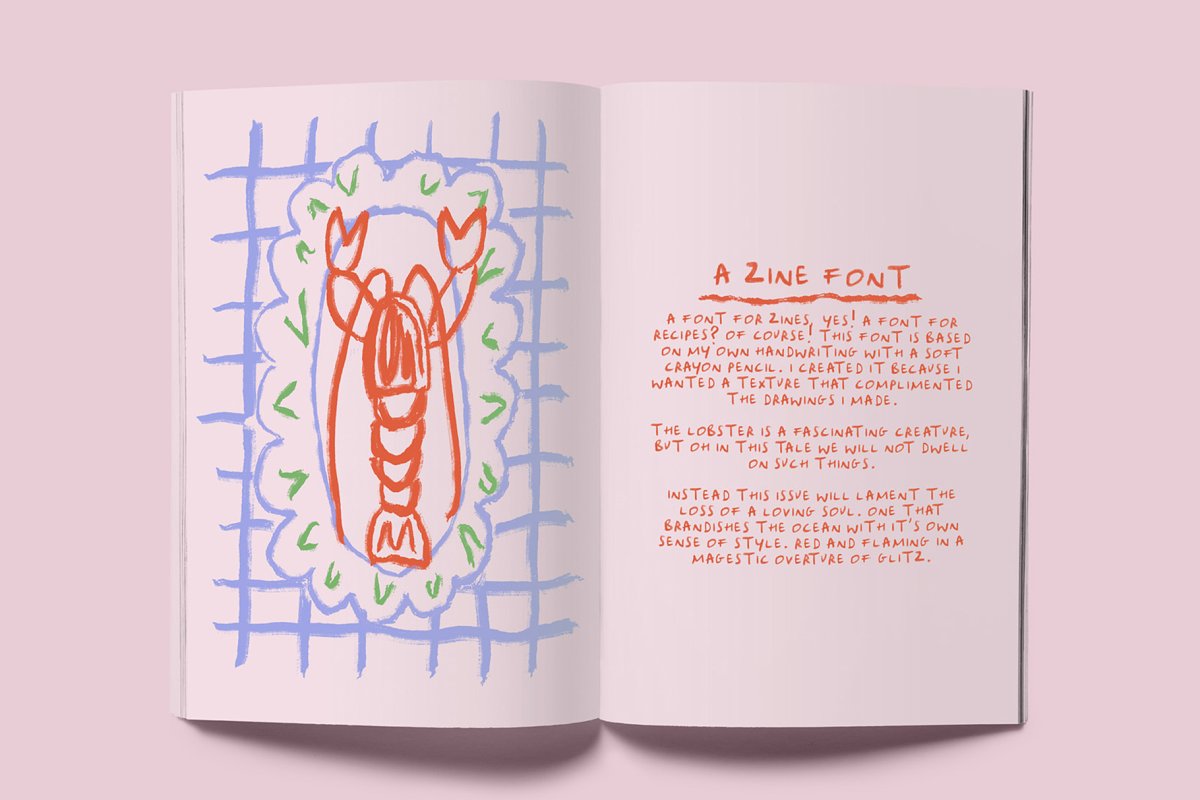 A ZINE FONT
A FONT FOR ZINES, YES! A FONT FOR
RECIPES? OF COURSE! THIS FONT IS BASED
ON MY OWN HANDWRITING WITH A SOFT
CRAYON PENCIL. I CREATED IT BECAUSE I
WANTED A TEXTURE THAT COMPLIMENTED
THE DRAWINGS I MADE.
THE LOBSTER IS A FASCINATING CREATURE,
BUT OH IN THIS TALE WE WILL NOT DWELL
ON SUCH THINGS.
INSTEAD THIS ISSUE WILL LAMENT THE
LOSS OF A LOVING SOUL. ONE THAT
BRANDISHES THE OCEAN WITH IT'S OWN
SENSE OF STYLE. RED AND FLAMING IN A
MAGESTIC OVERTURE OF GLITZ.